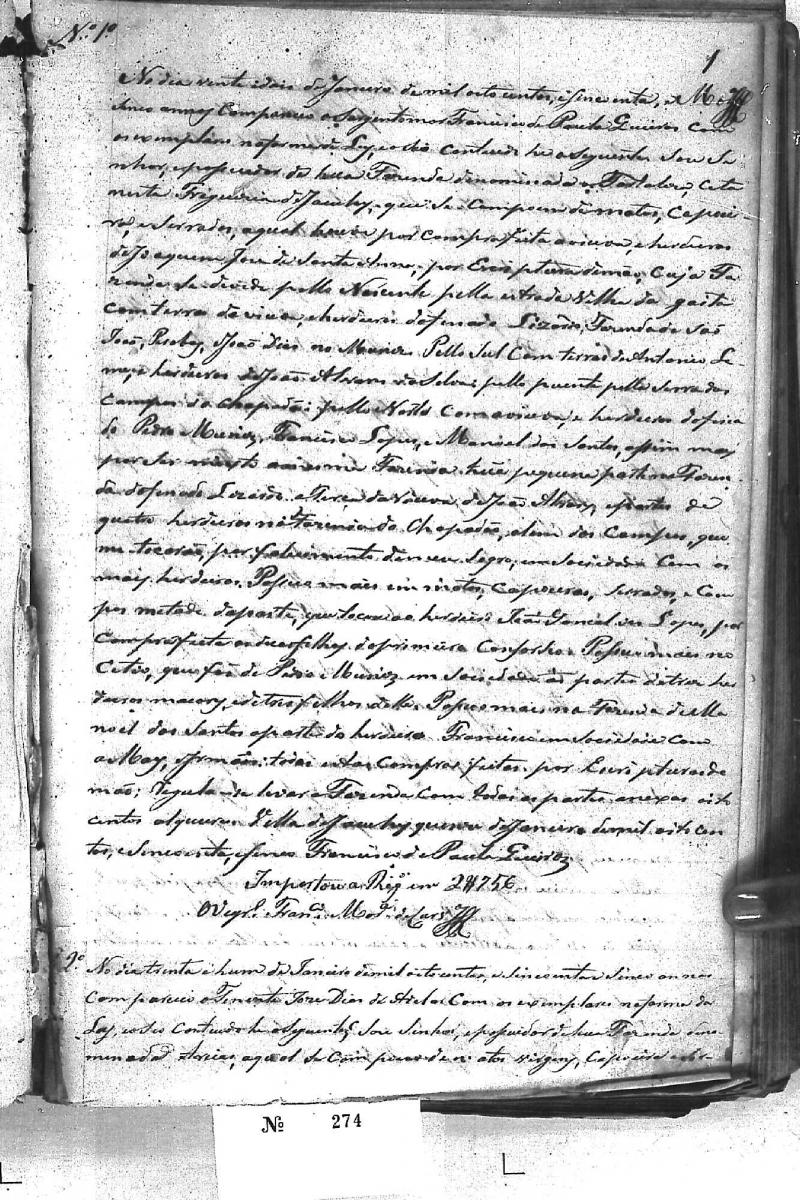 N.º 1º
1
No dia vente idois de Janeiro de mil oito centos, e sincoenta, e
sinco annos Compareceo o Sargentomor Francisco de Paula Queiros com
os exemplares na forma da Ley, e o seo contiudo he o seguente Sou Se-
nhor, e possuidor de hua Fazenda denominada a Fortaleza, Cita
nesta Freguezia de Jacuhy, que se compoem de matos, Capoei-
ras, e Serrados, a qual houve por compra feita a viuva, e herdeiros
de Joaquim Joze de Santa Anna, por Escriptura de mão, Cuja Fa-
zenda se devide pello Nascente pella estrada Velha da
com terras da viuva, e herdeiros do finado Lizardo, Fazenda de São
João, e João Dias no Pello Sul Com terras de Antonio Le-
me, e herdeiros de João Alvares da Silva: pello puente pella Serra dos
Campos do Chapadão: pello Norte Com a viuva, e herdeiros do fina-
do Pedro Muñoz, Francisco Lopes, e Manoel dos Santos, assim mais
por ser misto a mesma Fazenda hua pequena parte na Fazen-
da do finado Lizardo e Terça da Viuva de João Alvares, e partes de
quatro herdeiros na Fazenda do Chapadão, alem dos Campos, que
me tocarão, por falicimento de meu Sogro, em Sociedade Com os
mais herdeiros. Possuo mais em matos, Capoeiras, Serrados, e Cam-
pos metade da parte, que tocou ao herdeiro João Daniel Lopes, por
Compra feita a duas filhas do primeiro Consorcio. Possuo mais no
Citio, que foi de Pedro Muñoz em Sociedade as partes de tres her-
deiros maiores, e de tres filhos delle. Possuo mais na Fazenda de Ma-
noel dos Santos a parte do herdeiro Francisco em Sociedade com
a May, e Irmãos: todas estas Compras feitas por Escripturas de
mão; Regula-se levar a Fazenda com todas as partes anexas oito
centos alqueires. Villa de Jacuhy quinze de Janeiro de mil oito cen-
tos, e Sincoenta, e Sinco Francisco de Paula Queiroz
Importou a Reg.º em 2$756
O Vigr.º Fran.co
2.º
No dia trinta e hum de Janeiro de mil oito centos, e Sincoenta e Sinco annos
Compareceo o Tenente Joze Dias de Com os exemplares na forma da
Ley, e o seo Contiudo he o Seguente Sou Senhor, e possuidor de hua Fazenda deno-
minada a Areias, a qual se Compoem de matos virgens, Capoeiras
Nº 274